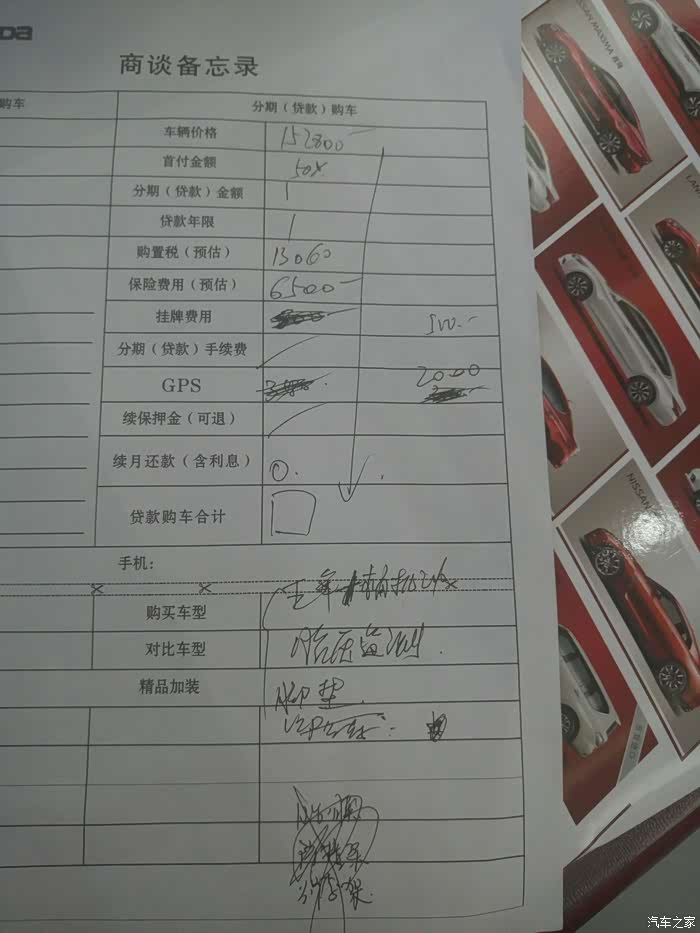 DA
商谈备忘录
购车 分期（贷款）购车
车辆价格 152800
首付金额 50%
分期（贷款）金额
贷款年限
购置税（预估） 13060
保险费用（预估） 6500
挂牌费用 500
分期（贷款）手续费
GPS 2000
续保押金（可退）
续月还款（含利息） 0
贷款购车合计
手机：
购买车型
对比车型 胎压监测
精品加装 脚垫
NISSAN MAXIMA 西玛
NISSAN
汽车之家